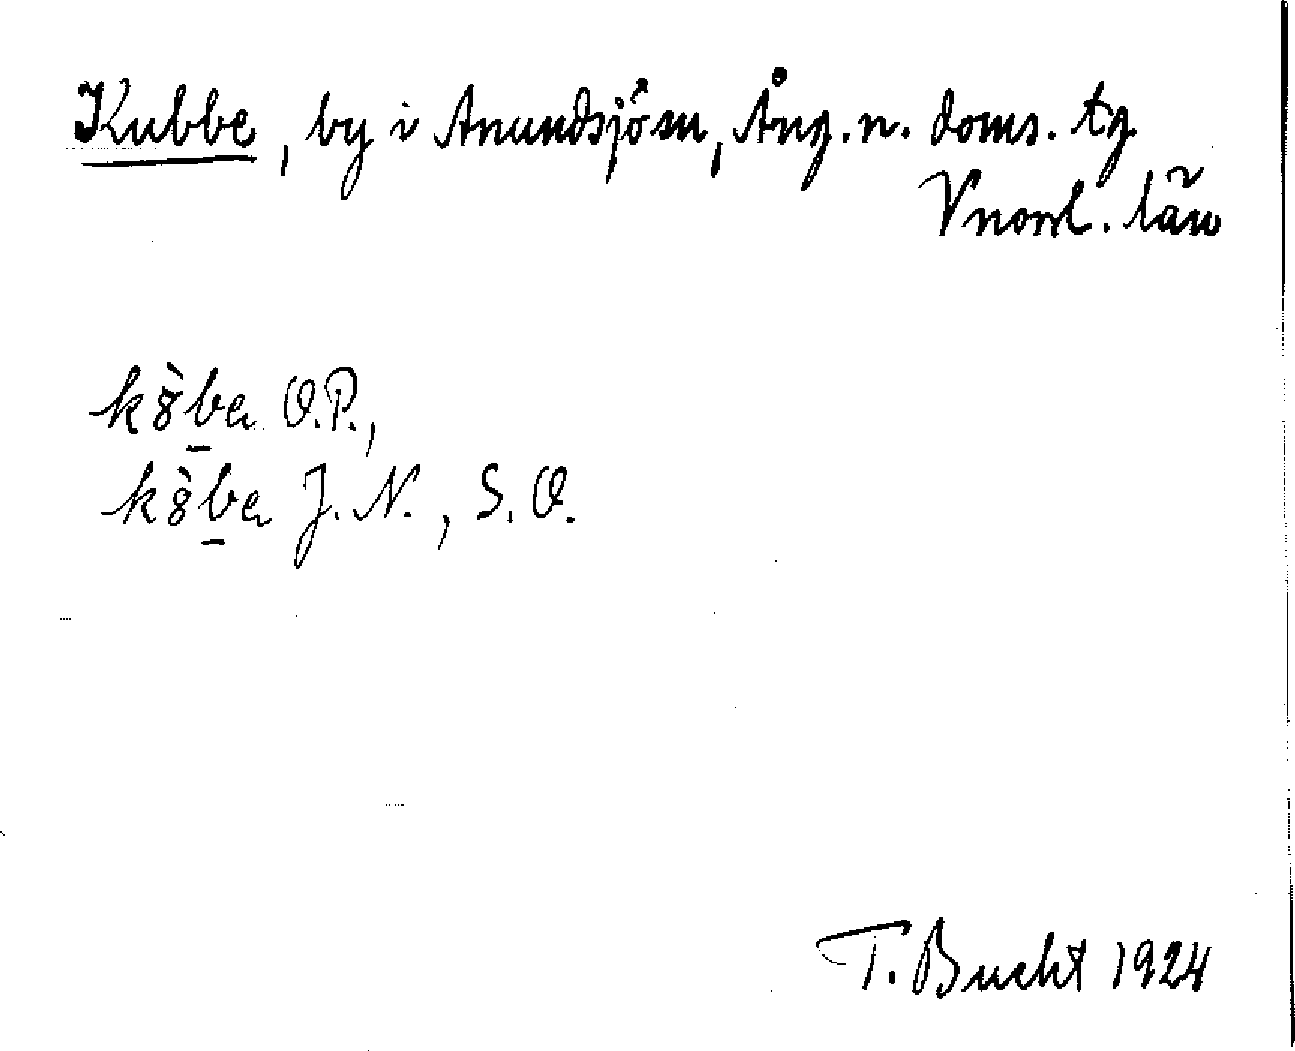 Kubbe, by i Anundsjö sn, Ång. n. doms. tg
Vnorrl. län
kȣ̀b̲a O.P.,
kȣ̀b̲a J. N., S. O.
T. Bucht 1924